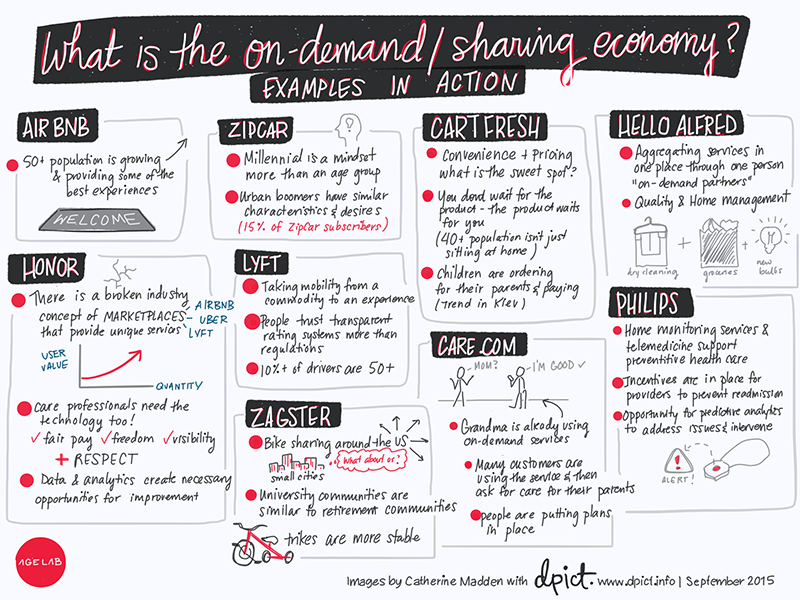 What is the on-demand/sharing economy?
EXAMPLES IN ACTION
AIR BNB
50+ population is growing
& providing some of the
best experiences
WELCOME
ZIPCAR
Millennial is a mindset
more than an age group
Urban boomers have similar
characteristics & desires
(15% of Zipcar subscribers)
CARTFRESH
Convenience + Pricing
what is the sweet spot?
You don't wait for the
product -- the product waits
for you
(40+ population isn't just
sitting at home)
Children are ordering
for their parents & paying
(trend in Kiev)
HELLO ALFRED
Aggregating services in
one place through one person
"on-demand partners"
Quality & Home management
dry cleaning
+
groceries
+
new
bulbs
HONOR
There is a broken industry
concept of MARKETPLACES
that provide unique services
- AIRBNB
- UBER
LYFT
USER
VALUE
QUANTITY
Care professionals need the
technology too!
✓ fair pay ✓ freedom ✓ visibility
+ RESPECT
Data & analytics create necessary
opportunities for improvement
LYFT
Taking mobility from a
commodity to an experience
People trust transparent
rating systems more than
regulations
10%+ of drivers are 50+
ZAGSTER
Bike sharing around the US
small cities
What about us?
University communities are
similar to retirement communities
trikes are more stable
CARE.COM
MOM?
I'M GOOD ✓
Grandma is already using
on-demand services
Many customers are
using the service & then
ask for care for their parents
people are putting plans
in place
PHILIPS
Home monitoring services &
telemedicine support
preventitive health care
Incentives are in place for
providers to prevent readmission
Opportunity for predictive analytics
to address issues & intervene
ALERT!
AGELAB
Images by Catherine Madden with dpict. www.dpict.info | September 2015